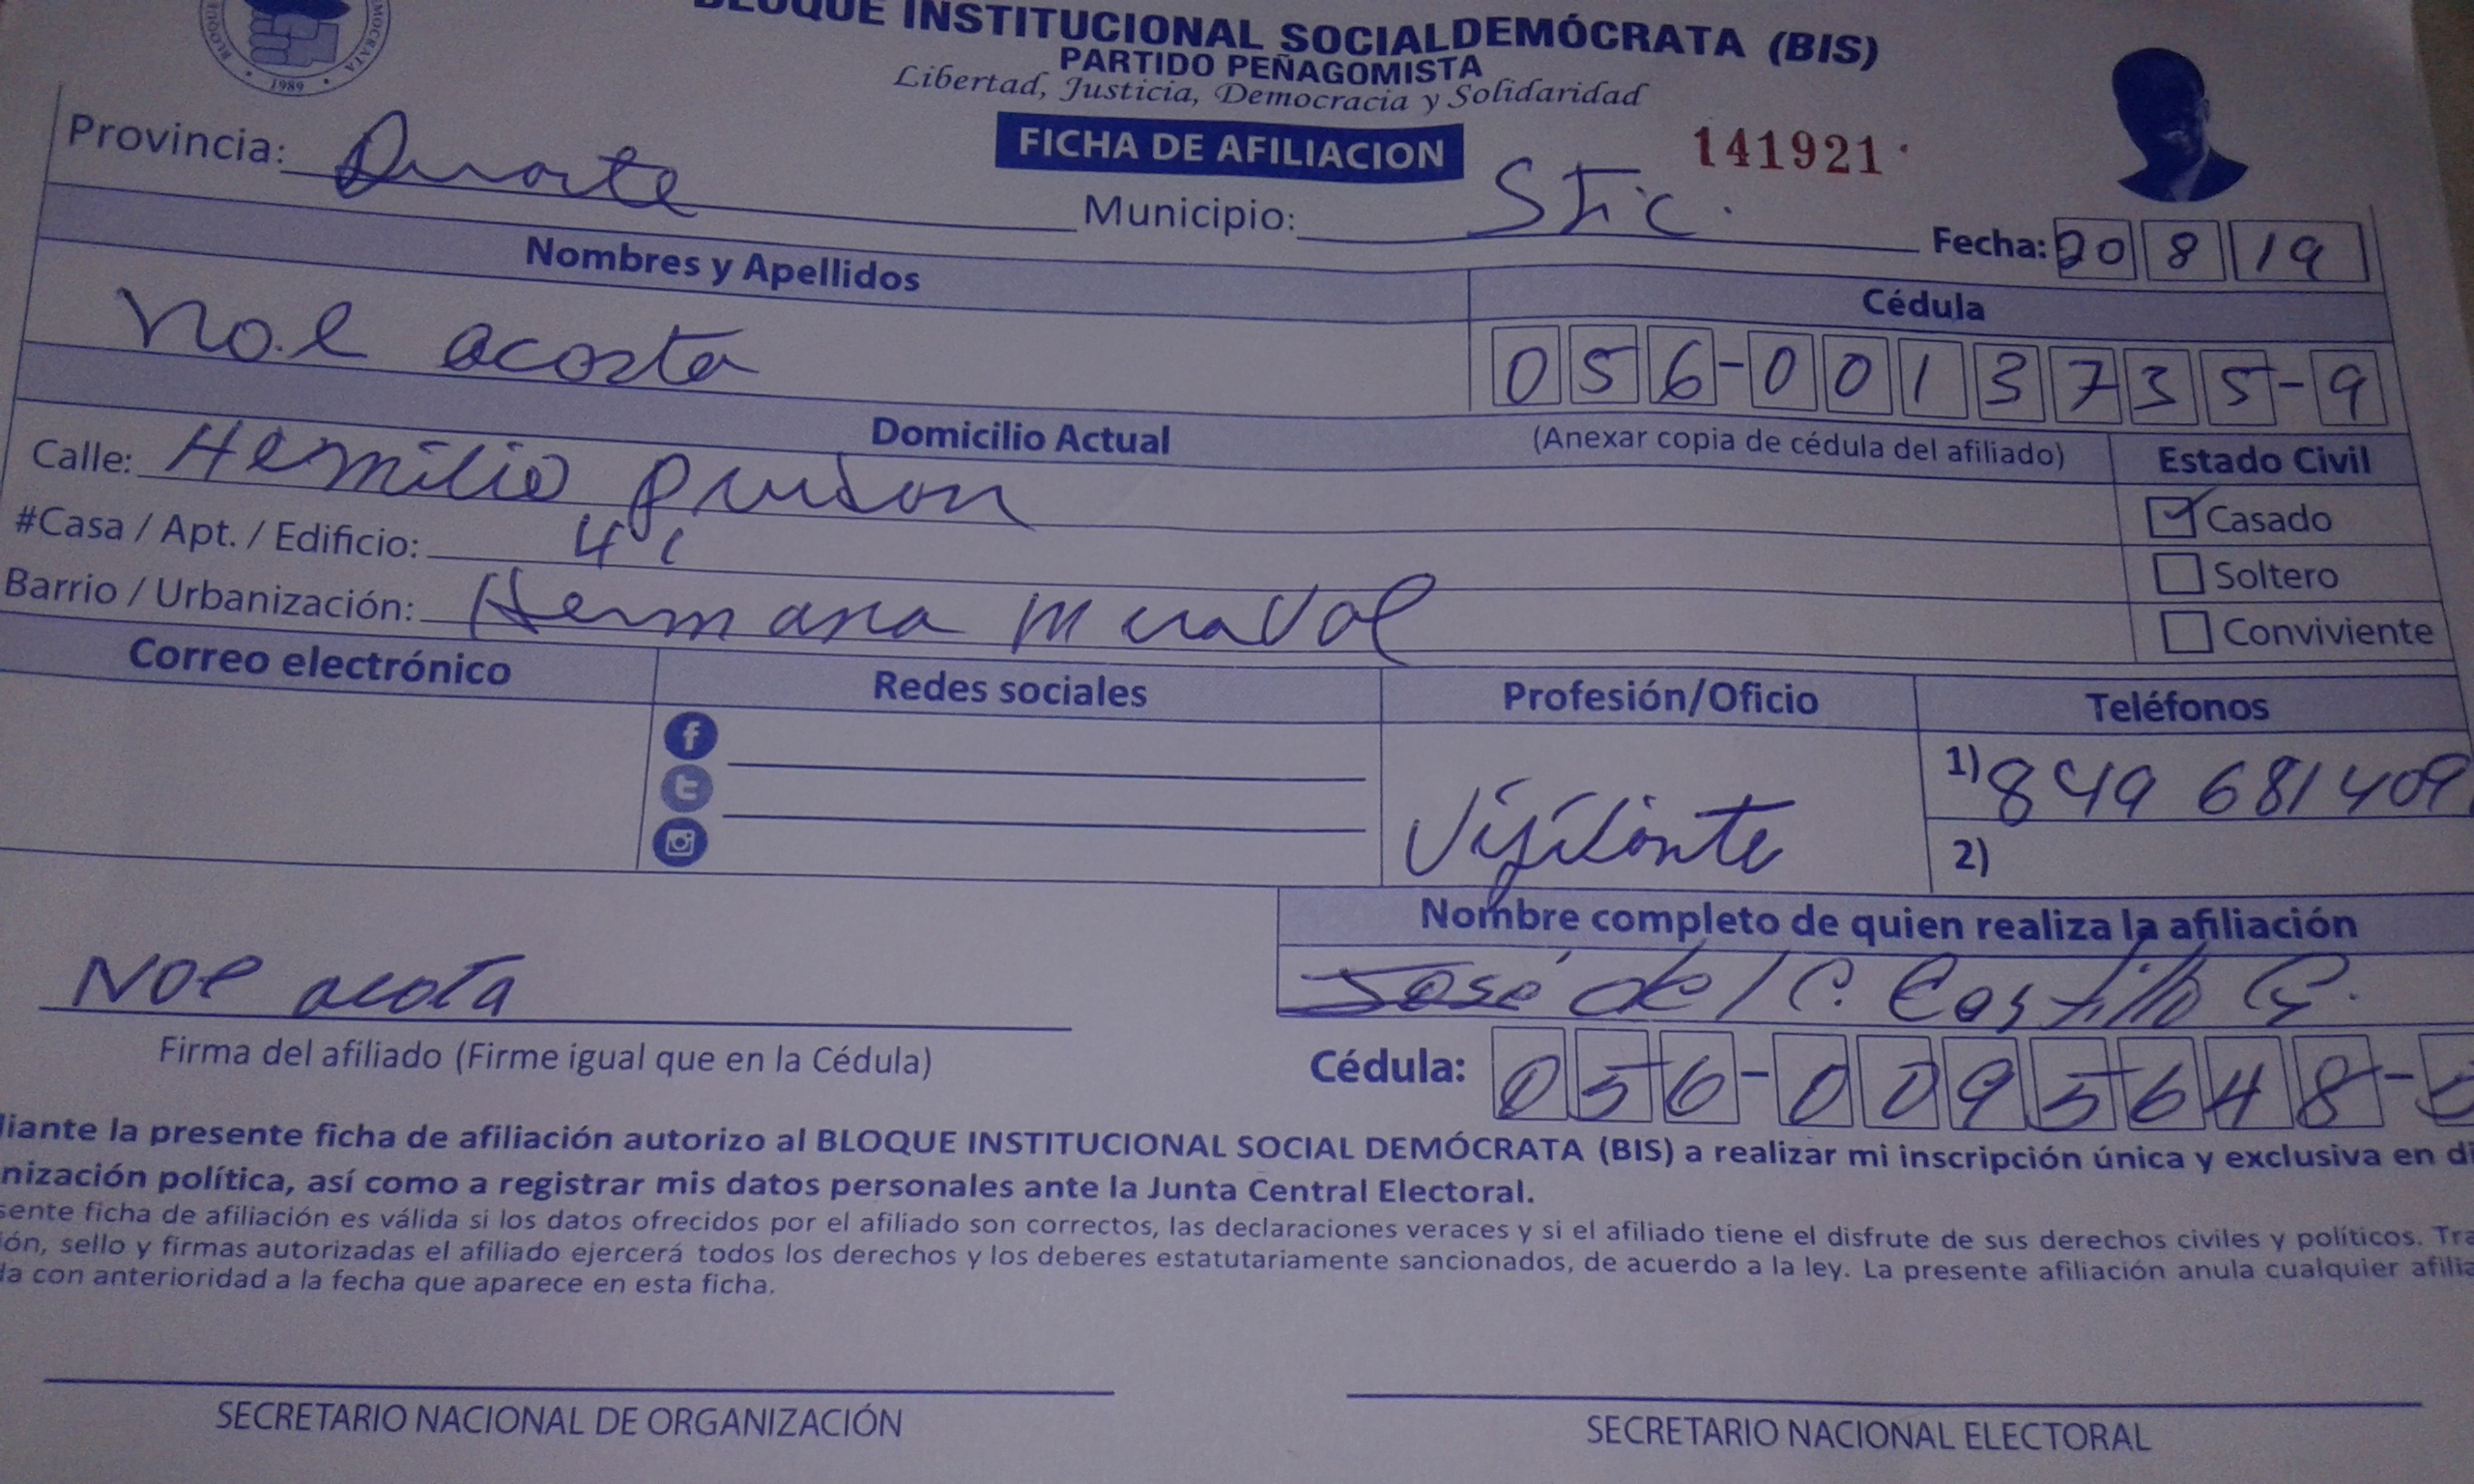 BLOQUE INSTITUCIONAL SOCIALDEMÓCRATA (BIS)
PARTIDO PEÑAGOMISTA
Libertad, Justicia, Democracia y Solidaridad
1989
FICHA DE AFILIACION
141921
Provincia: Duarte
Municipio:
Fecha: 20 8 19
Nombres y Apellidos
Cédula
Noel acosta
056-0013735-9
Domicilio Actual
(Anexar copia de cédula del afiliado)
Estado Civil
Calle: Hemilio
Casado
#Casa / Apt. / Edificio:
Soltero
Barrio / Urbanización: Hermana
Conviviente
Correo electrónico
Redes sociales
Profesión/Oficio
Teléfonos
Vigilante
1) 849 681 409
2)
Nombre completo de quien realiza la afiliación
Noe acota
José de l C. Castillo G.
Firma del afiliado (Firme igual que en la Cédula)
Cédula: 056-0095648-
diante la presente ficha de afiliación autorizo al BLOQUE INSTITUCIONAL SOCIAL DEMÓCRATA (BIS) a realizar mi inscripción única y exclusiva en di
nización política, así como a registrar mis datos personales ante la Junta Central Electoral.
sente ficha de afiliación es válida si los datos ofrecidos por el afiliado son correctos, las declaraciones veraces y si el afiliado tiene el disfrute de sus derechos civiles y políticos. Tra
ión, sello y firmas autorizadas el afiliado ejercerá todos los derechos y los deberes estatutariamente sancionados, de acuerdo a la ley. La presente afiliación anula cualquier afilia
da con anterioridad a la fecha que aparece en esta ficha.
SECRETARIO NACIONAL DE ORGANIZACIÓN
SECRETARIO NACIONAL ELECTORAL